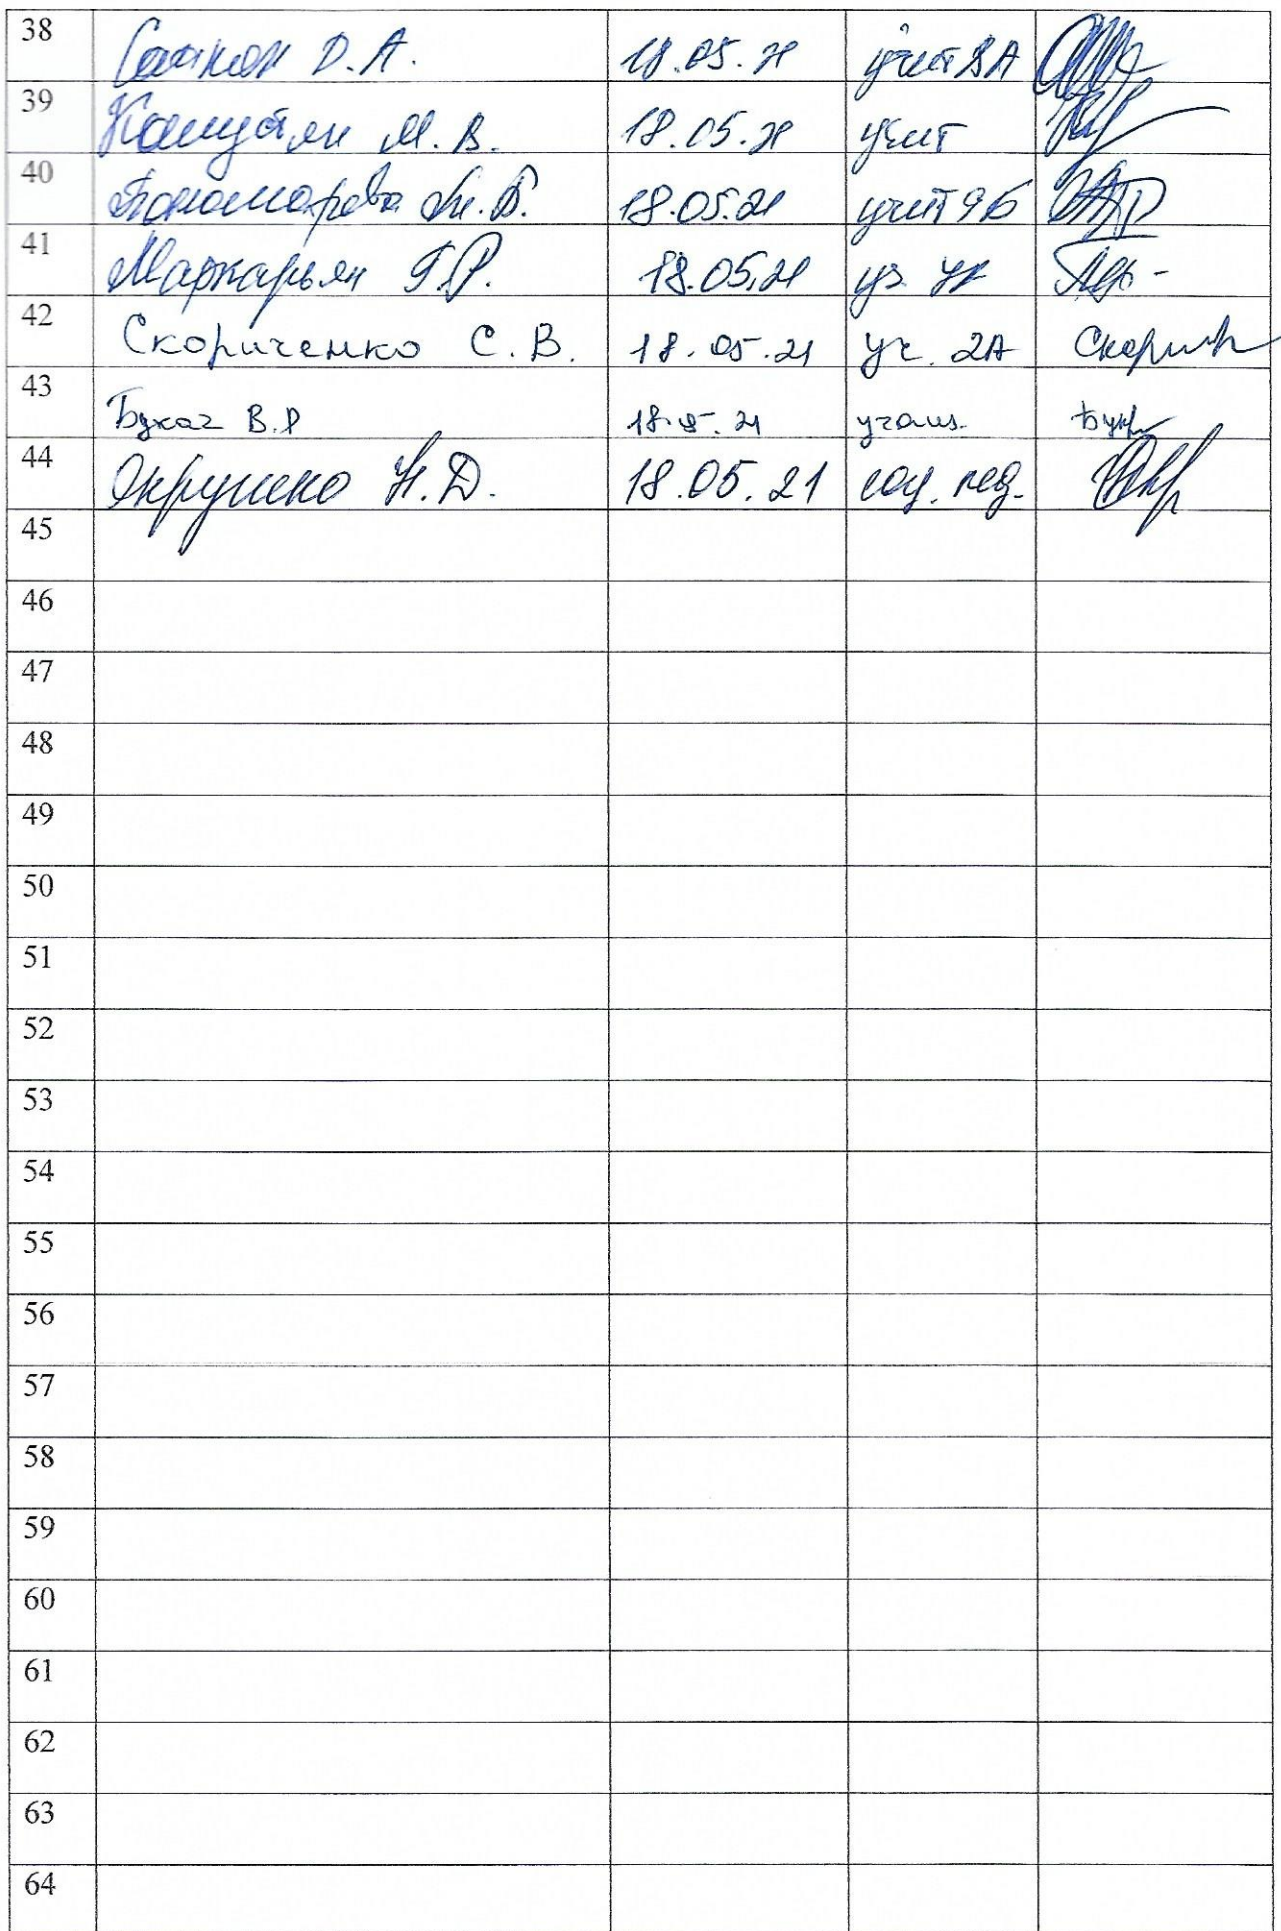 38 Саакян D. А. 18.05.21 учит 8А
39 Камустян М. В. 18.05.21 учит
40 Пономарева М. Б. 18.05.21 учит 9Б
41 Маркарьян Г.Р. 18.05.21 уч.
42 Скориченко С. В. 18.05.21 уч. 2А Скорич
43 Букач В.Р 18.05.21 учащ. Бук
44 Окрушко Н. Д. 18.05.21 соц. пед.
45
46
47
48
49
50
51
52
53
54
55
56
57
58
59
60
61
62
63
64